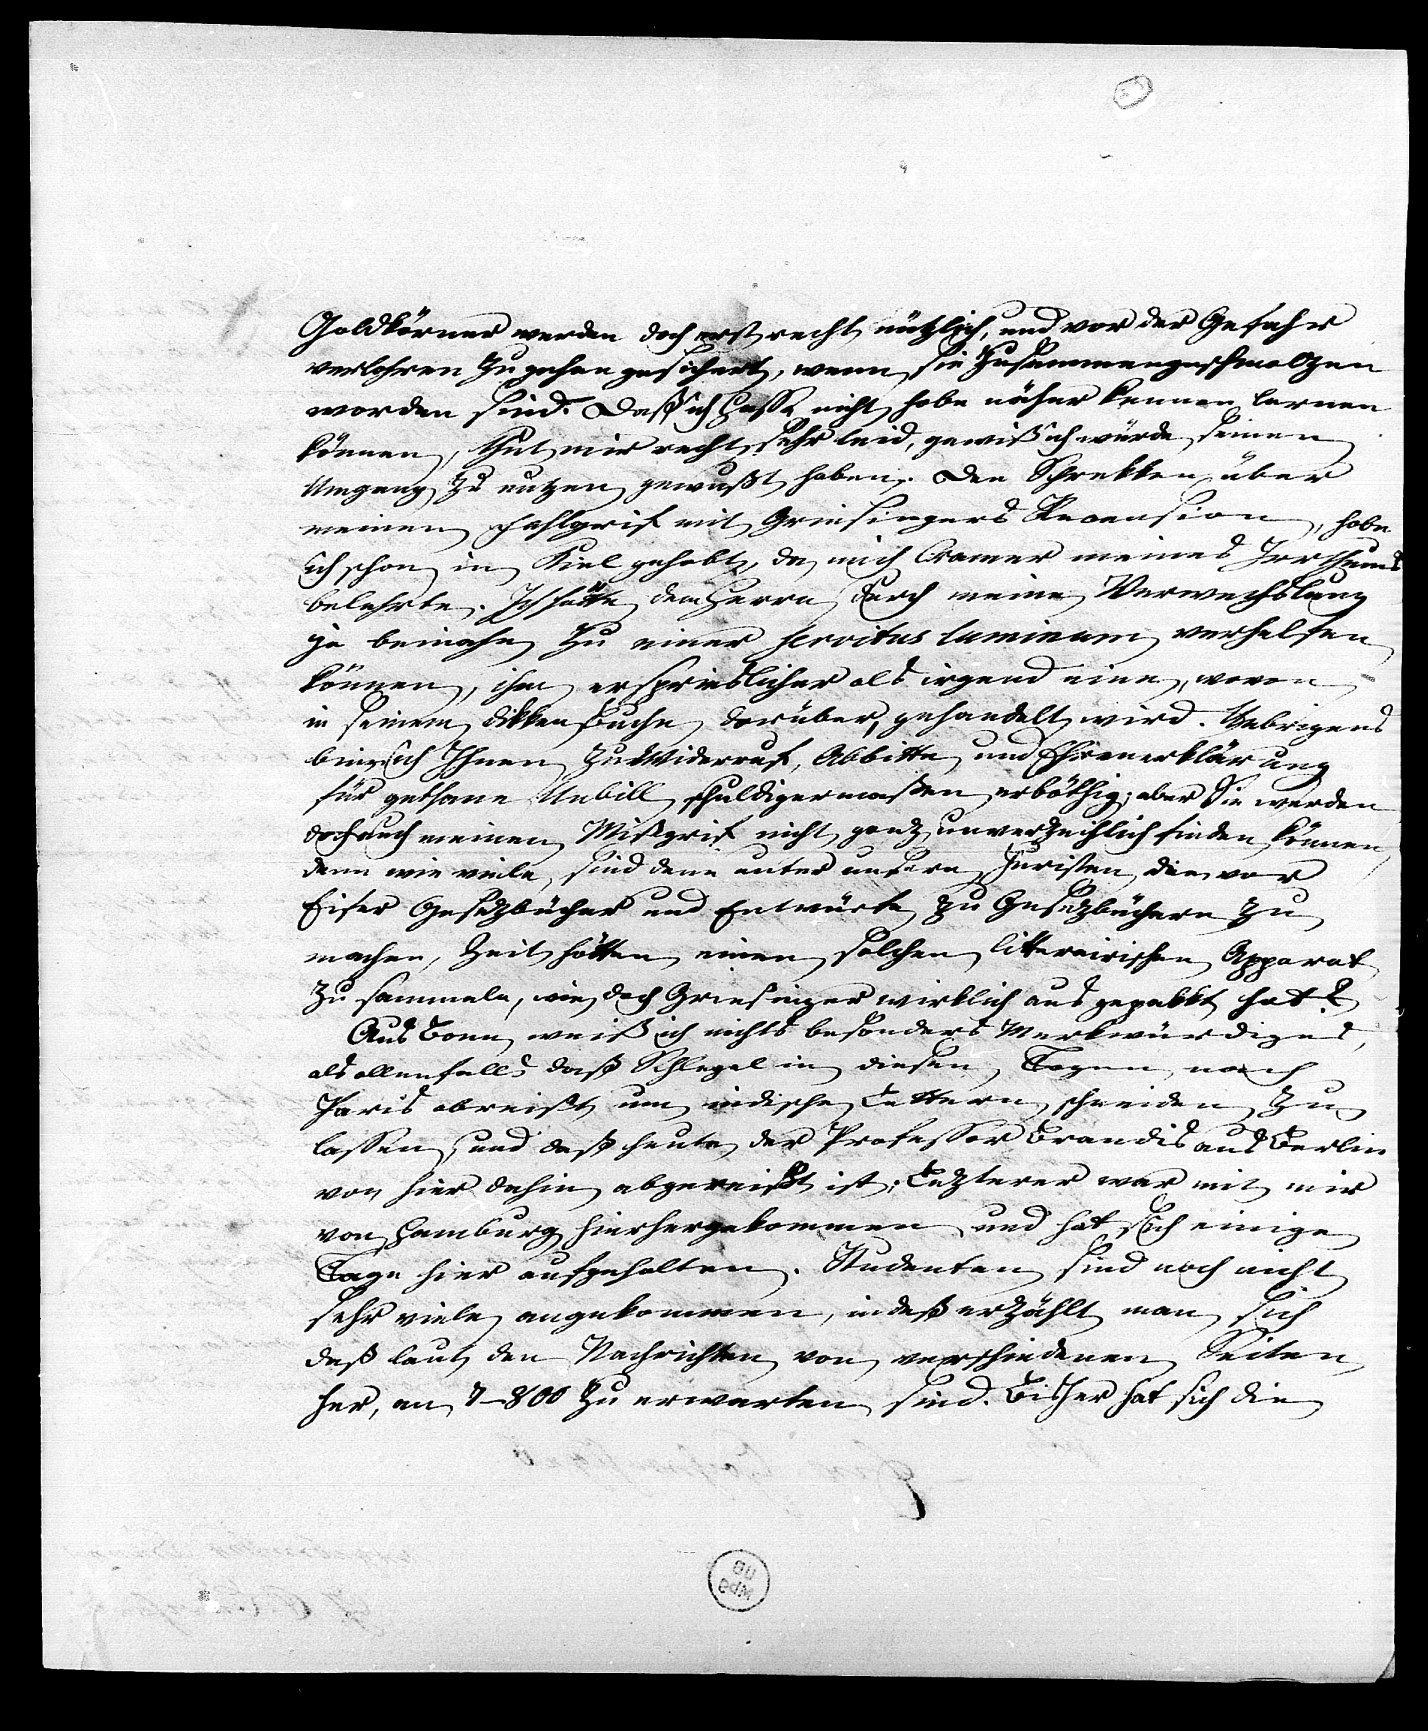 Goldkörner werden doch erst recht nützlich, und vor der Gefahr
verlohren zu gehen gesichert, wenn sie zusammengeschmolzen
worden sind. Daß ich Hasse nicht habe näher kennen lernen
können, thut mir recht sehr leid, gewiß ich würde seinen
Umgang zu nutzen gewußt haben. Den Schrekken über
meinen Fehlgrif mit Griesingers Recension, habe
ich schon in Kiel gehabt, da mich Cramer meines Irrthums
belehrte. Ich hätte dem Herrn durch meine Verwechslung
ja beinahe zu einer servitus luminum verhelfen
können, ihm ersprieslicher als irgend eine, wovon
in seinem dikken Buche darüber, gehandelt wird. Uebrigens
bin ich Ihnen zu Widerruf, Abbitte und Ehrenerklärung
für gethane Unbill schuldigermaßen erböthig; aber Sie werden
doch auch meinen Misgrif nicht ganz unverzeihlich finden können,
denn wie viele sind denn unter unsern Juristen, die vor
Eifer Gesezbücher und Entwürfe zu Gesezbüchern zu
machen, Zeit hätten einen solchen litterairischen Apparat
zu sammeln, wie doch Griesinger wirklich ausgepakkt hat?
Aus Bonn weiß ich nichts besonders Merkwürdiges,
als allenfalls daß Schlegel in diesen Tagen nach
Paris abreißt um indische Lettern schneiden zu
lassen, und daß heute der Professor Brandis aus Berlin
von hier dahin abgereißt ist; Lezterer war mit mir
von Hamburg hierhergekommen und hat sich einige
Tage hier aufgehalten. Studenten sind noch nicht
sehr viele angekommen, indeß erzählt man sich
daß laut den Nachrichten von verschiedenen Seiten
her, an 7–800 zu erwarten sind. Bisher hat sich die